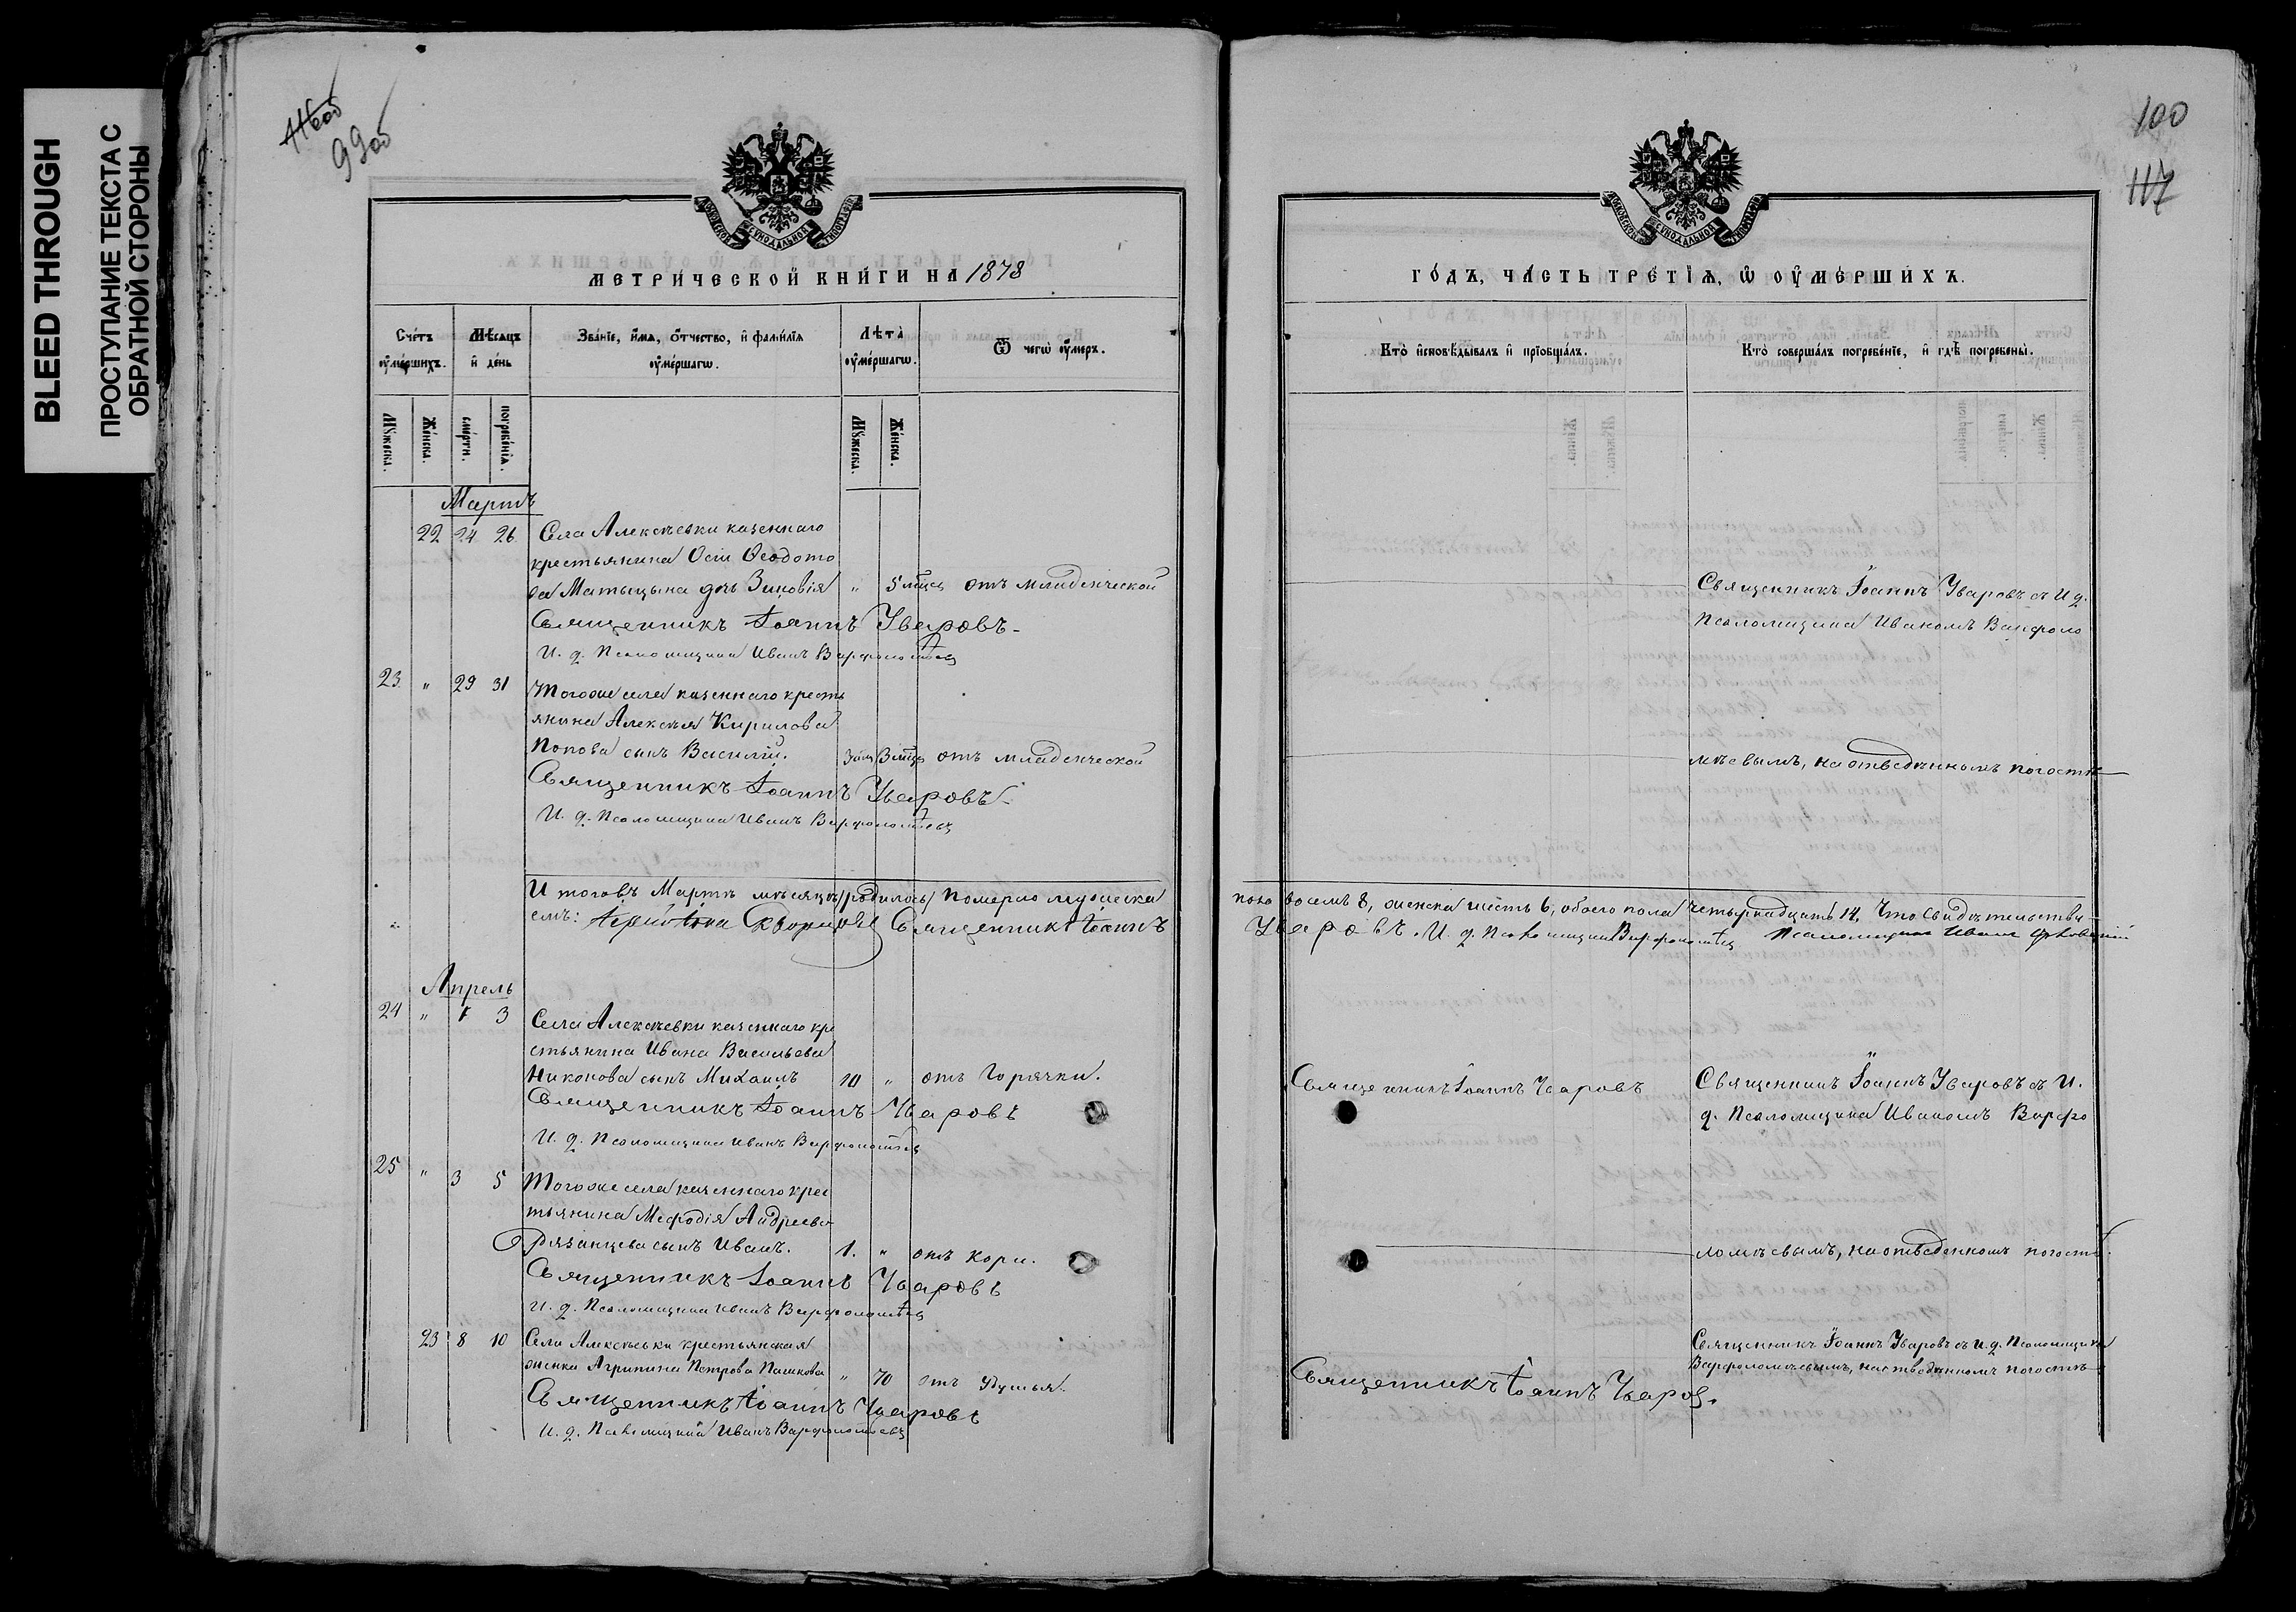 BLEED THROUGH
ПРОСТУПАНИЕ ТЕКСТА С
ОБРАТНОЙ СТОРОНЫ
99об
МОСКОВСКОЙ СѴНОДАЛЬНОЙ ТИПОГРАФІИ
МЕТРИ́ЧЕСКОЙ КНИ́ГИ НА 1878
Сче́тъ ᲂумє́ршихъ.
Мѣ́сяцъ и҆ де́нь
Зва́нїе, и҆́мѧ, ѻ҆́тчество, и҆ фами́лїѧ ᲂумє́ршагѡ.
Лѣта̀ ᲂумє́ршагѡ.
Ѿ чегѡ̀ ᲂу҆́меръ.
Мꙋ́жеска.
Же́нска.
сме́рти.
погребе́нїѧ.
Мꙋ́жеска.
Же́нска.
Мартъ
22 24 26 Села Алексѣевки казеннаго
крестьянина Осіи Ѳеодото
ва Матыцына дчь Зиновія " 5 мѣсц отъ младенческой
Священникъ Іоаннъ Уваровъ
И. д. Псаломщика Иванъ Варфоломѣевъ
23 " 29 31 Тогоже села казеннаго кресть
янина Алексѣя Кирилова
Попова сынъ Василій. отъ младенческой
Священникъ Іоаннъ Уваровъ
И. д. Псаломщика Иванъ Варфоломѣевъ
Итого въ Мартѣ мѣсяцѣ (родилось) померло мужеска
Священникъ Іоаннъ
Апрель
24 " 1 3 Села Алексѣевки казеннаго кре
стьянина Ивана Васильева
Никонова сынъ Михаилъ 10 " отъ горячки.
Священникъ Іоаннъ Уваровъ
И. д. Псаломщика Иванъ Варфоломѣевъ
25 " 3 5 Тогоже села казеннаго крес
тьянина Мефодія Андреева
Рязанцева сынъ Иванъ. 1. " отъ кори.
Священникъ Іоаннъ Уваровъ
И. д. Псаломщика Иванъ Варфоломѣевъ
23 8 10 Села Алексѣевки крестьянская
женка Агрипина Петрова Пашкова " 70 отъ удушья.
Священникъ Іоаннъ Уваровъ
И. д. Псаломщика Иванъ Варфоломѣевъ
100
117
МОСКОВСКОЙ СѴНОДАЛЬНОЙ ТИПОГРАФІИ
ГО́ДЪ, ЧА́СТЬ ТРЕ́ТЇѦ, Ѡ ОУМЕ́РШИХЪ.
Кто̀ и҆сповѣ́дывалъ и҆ прїѡбща́лъ.
Кто̀ соверша́лъ погребе́нїе, и҆ гдѣ̀ погребены̀.
Священникъ Іоаннъ Уваровъ съ И. д.
Псаломщика Иваномъ Варфоло
мѣевымъ, на отведенномъ погостѣ
пола восемь 8, женска шесть 6, обоего пола четырнадцать 14. Что свидѣтельству
Уваровъ. И. д. Псаломщика Варфоломѣевъ Псаломщикъ Иванъ
Священникъ Іоаннъ Уваровъ Священникъ Іоаннъ Уваровъ съ И.
д. Псаломщика Иваномъ Варфо
ломѣевымъ, на отведенномъ погостѣ.
Священникъ Іоаннъ Уваровъ съ И. д. Псаломщика
Варфоломѣевымъ, на отведенномъ погостѣ
Священникъ Іоаннъ Уваров.